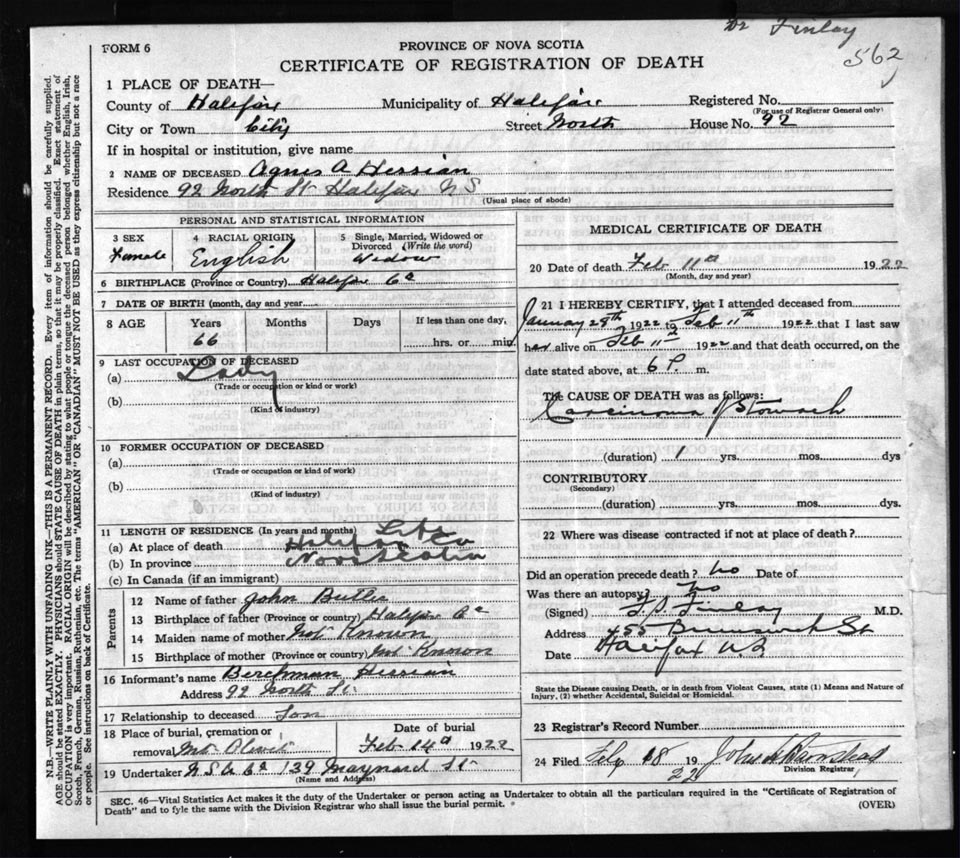 Dr Finlay
562
FORM 6
PROVINCE OF NOVA SCOTIA
CERTIFICATE OF REGISTRATION OF DEATH
1 PLACE OF DEATH—
County of Halifax Municipality of Halifax Registered No.
(For use of Registrar General only)
City or Town City Street North House No. 92
If in hospital or institution, give name
2 NAME OF DECEASED Agnes A
Residence 92 North St Halifax N S
(Usual place of abode)
PERSONAL AND STATISTICAL INFORMATION
3 SEX 4 RACIAL ORIGIN 5 Single, Married, Widowed or Divorced (Write the word)
Female English Widow
6 BIRTHPLACE (Province or Country) Halifax Co
7 DATE OF BIRTH (month, day and year)
8 AGE Years Months Days If less than one day,
66 hrs. or min
9 LAST OCCUPATION OF DECEASED
(a) Lady
(Trade or occupation or kind or work)
(b)
(Kind of industry)
10 FORMER OCCUPATION OF DECEASED
(a)
(Trade or occupation or kind of work)
(b)
(Kind of industry)
11 LENGTH OF RESIDENCE (In years and months) Life
(a) At place of death Halifax Co
(b) In province Nova Scotia
(c) In Canada (if an immigrant)
Parents
12 Name of father John Butler
13 Birthplace of father (Province or Country) Halifax Co
14 Maiden name of mother Not Known
15 Birthplace of mother (Province or country) Not Known
16 Informant's name Berchman
Address 92 North St.
17 Relationship to deceased Son
18 Place of burial, cremation or removal Mt Olivet Date of burial Feb 14th 1922
19 Undertaker N S U Co 139 Maynard St
(Name and Address)
MEDICAL CERTIFICATE OF DEATH
20 Date of death Feb 11th 1922
(Month, day and year)
21 I HEREBY CERTIFY, that I attended deceased from
January 29th 1922 to Feb 11th 1922 that I last saw
her alive on Feb 11th 1922 and that death occurred, on the
date stated above, at 6 P. m.
The CAUSE OF DEATH was as follows:
Carcinoma of Stomach
(duration) 1 yrs. mos. dys
CONTRIBUTORY
(Secondary)
(duration) yrs. mos. dys.
22 Where was disease contracted if not at place of death?
Did an operation precede death? No Date of
Was there an autopsy? No
(Signed) Finlay M.D.
Address 455 Brunswick St
Date Halifax N S
State the Disease causing Death, or in death from Violent Causes, state (1) Means and Nature of
Injury, (2) whether Accidental, Suicidal or Homicidal.
23 Registrar's Record Number
24 Filed Feb 18 1922 John
Division Registrar
SEC. 46—Vital Statistics Act makes it the duty of the Undertaker or person acting as Undertaker to obtain all the particulars required in the "Certificate of Registration of
Death" and to fyle the same with the Division Registrar who shall issue the burial permit.
(OVER)
N.B.—WRITE PLAINLY WITH UNFADING INK—THIS IS A PERMANENT RECORD. Every item of information should be carefully supplied.
AGE should be stated EXACTLY. PHYSICIANS should STATE CAUSE OF DEATH in plain terms, so that it may be properly classified. Exact statement of
OCCUPATION is very important. RACIAL ORIGIN will be described by stating to what people or tongue the deceased person belonged whether English, Irish,
Scotch, French, German, Russian, Ruthenian, etc. The terms "AMERICAN" OR "CANADIAN" MUST NOT BE USED as they express citizenship but not a race
or people. See instructions on back of Certificate.